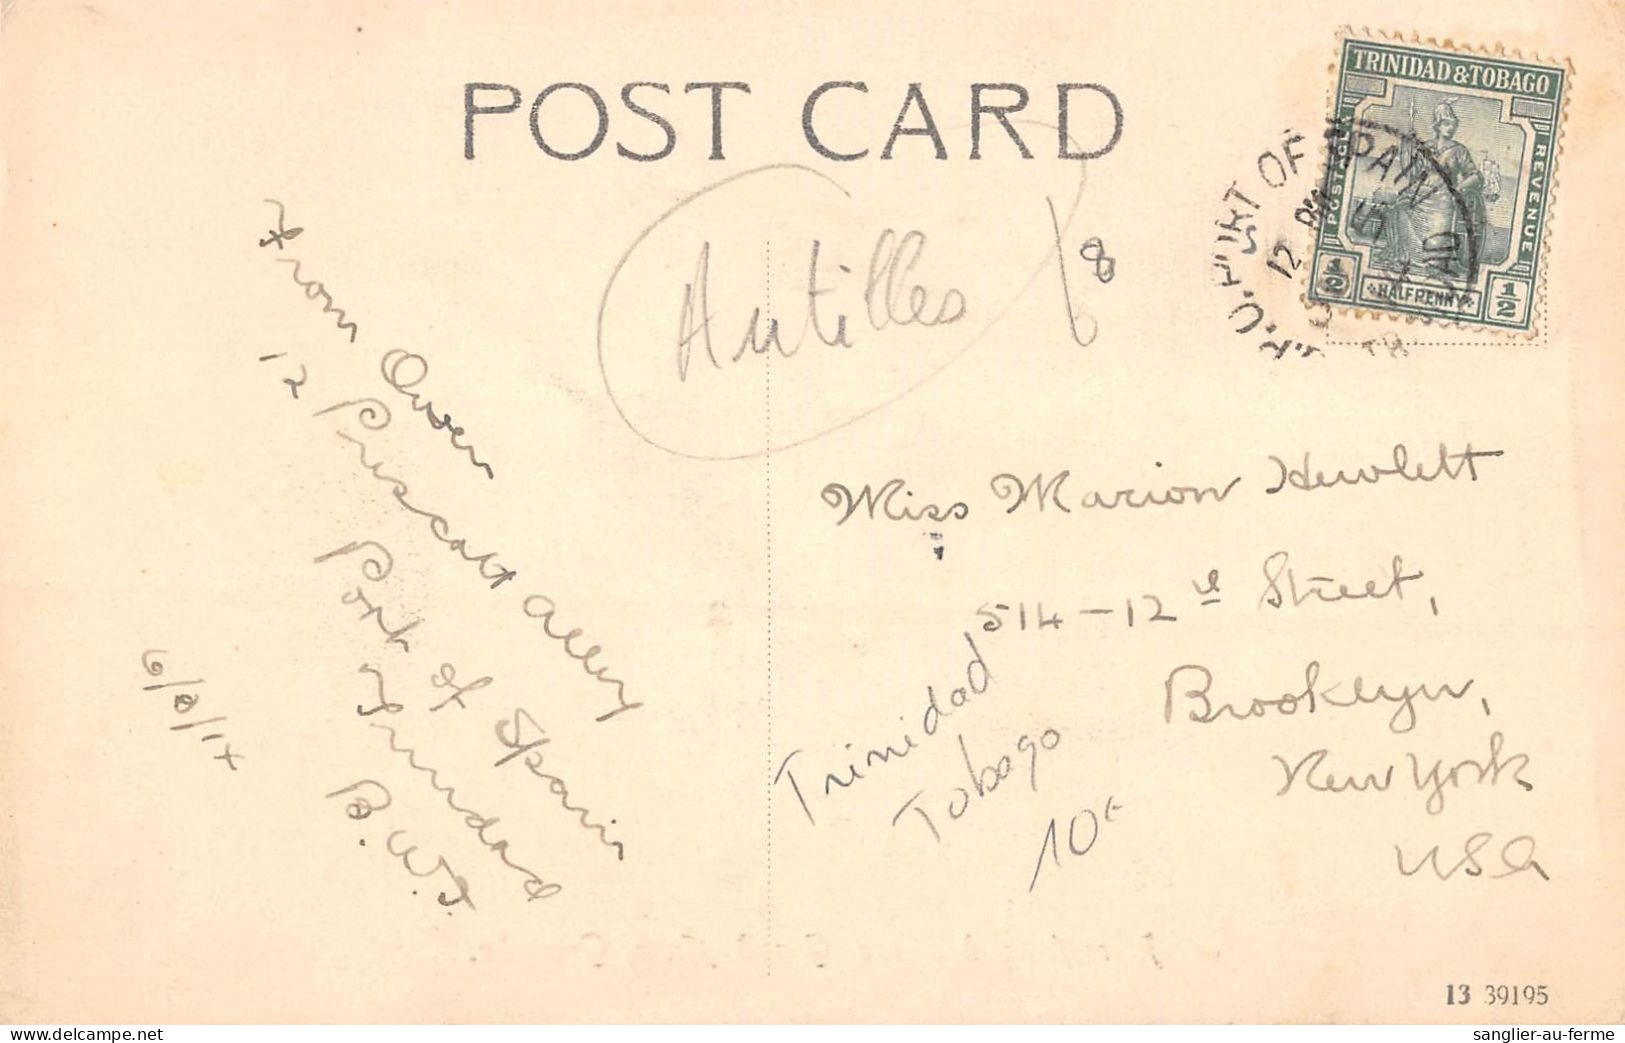 POST CARD
TRINIDAD & TOBAGO
POSTAGE
REVENUE
1/2
HALFPENNY
1/2
G.P.O. PORT OF SPAIN
12 PM
Antilles
8
From Owen
12 Prescott Alley
Port of Spain
Trinidad
B.W.I.
6/8/14
Miss Marion Hewlett
514-12th Street,
Brooklyn,
New York
USA
Trinidad
Tobago
10€
13 39195
sanglier-au-ferme